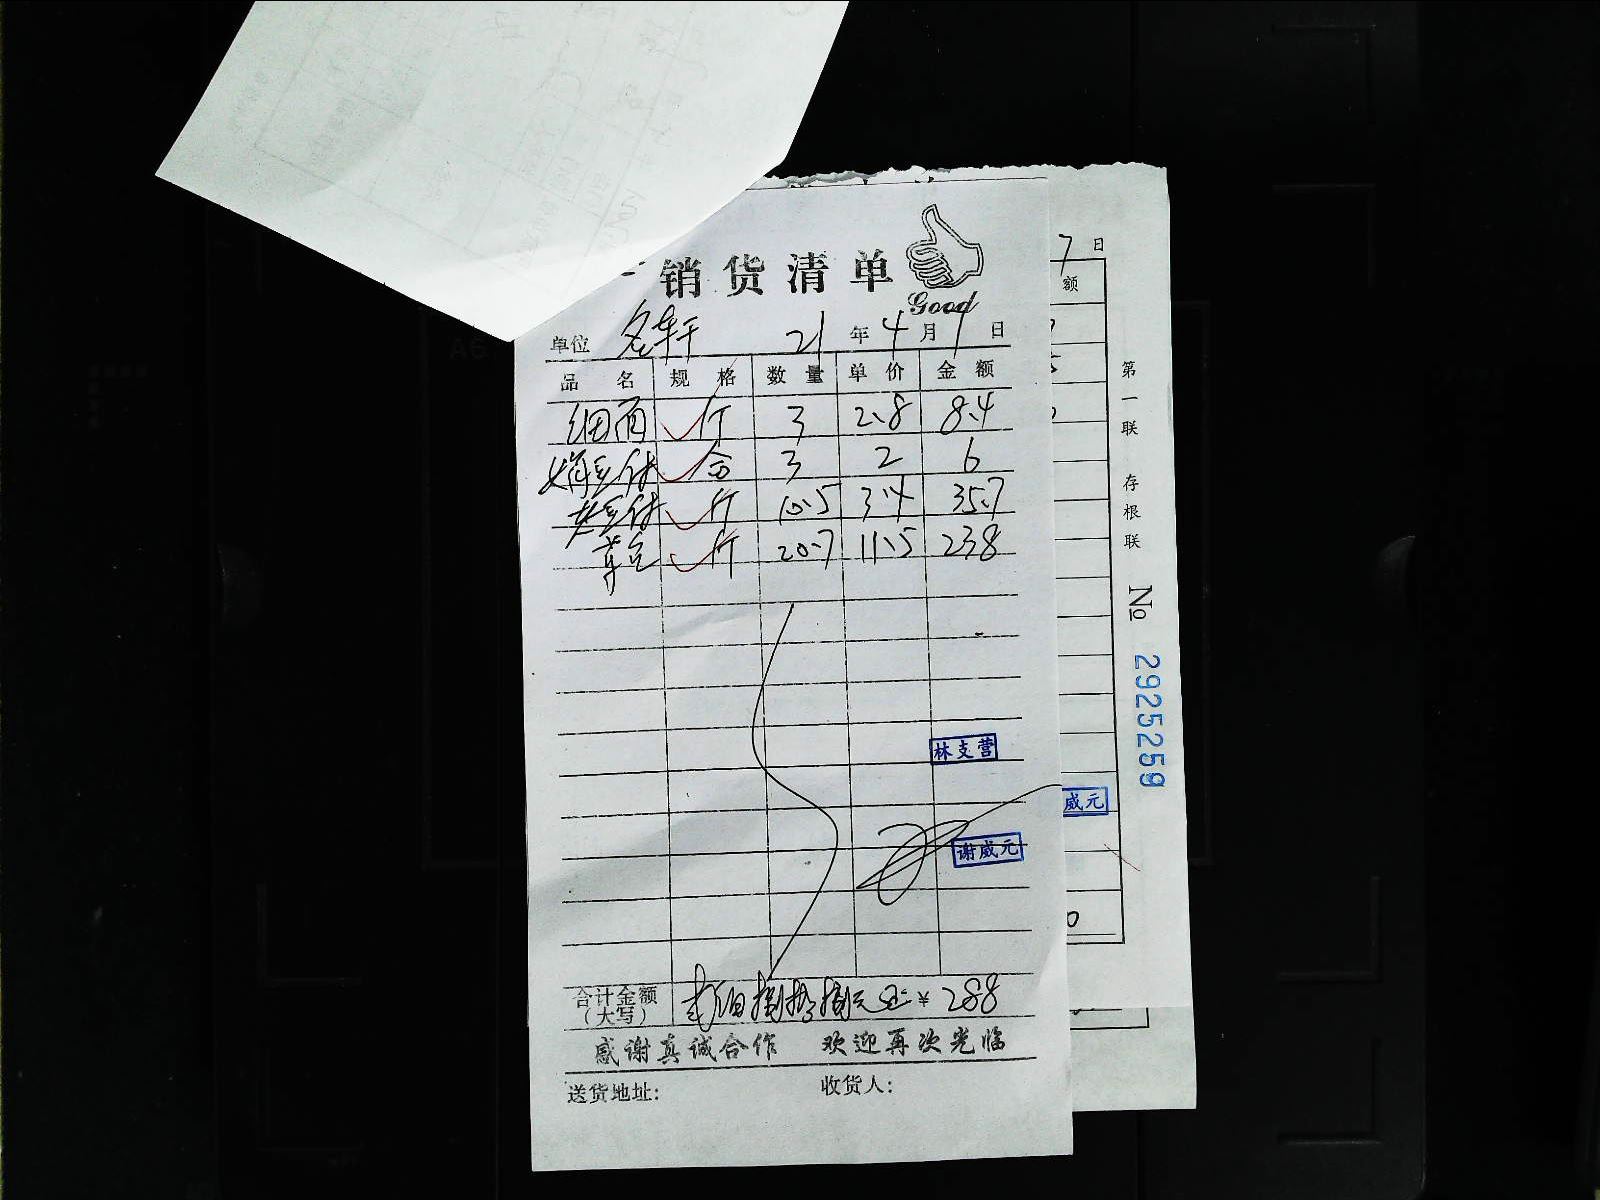 销货清单
Good
单位 名轩 21 年 4 月 1 日
品名 规格 数量 单价 金额
细面 斤 3 2.8 8.4
盒 3 2 6
斤 10.5 3.4 35.7
草鱼 斤 20.7 11.5 238
林支营
谢威元
合计金额(大写) 贰佰捌拾捌元正 ¥ 288
感谢真诚合作 欢迎再次光临
送货地址: 收货人:
7 日
额
第一联 存根联
No 2925259
威元
0